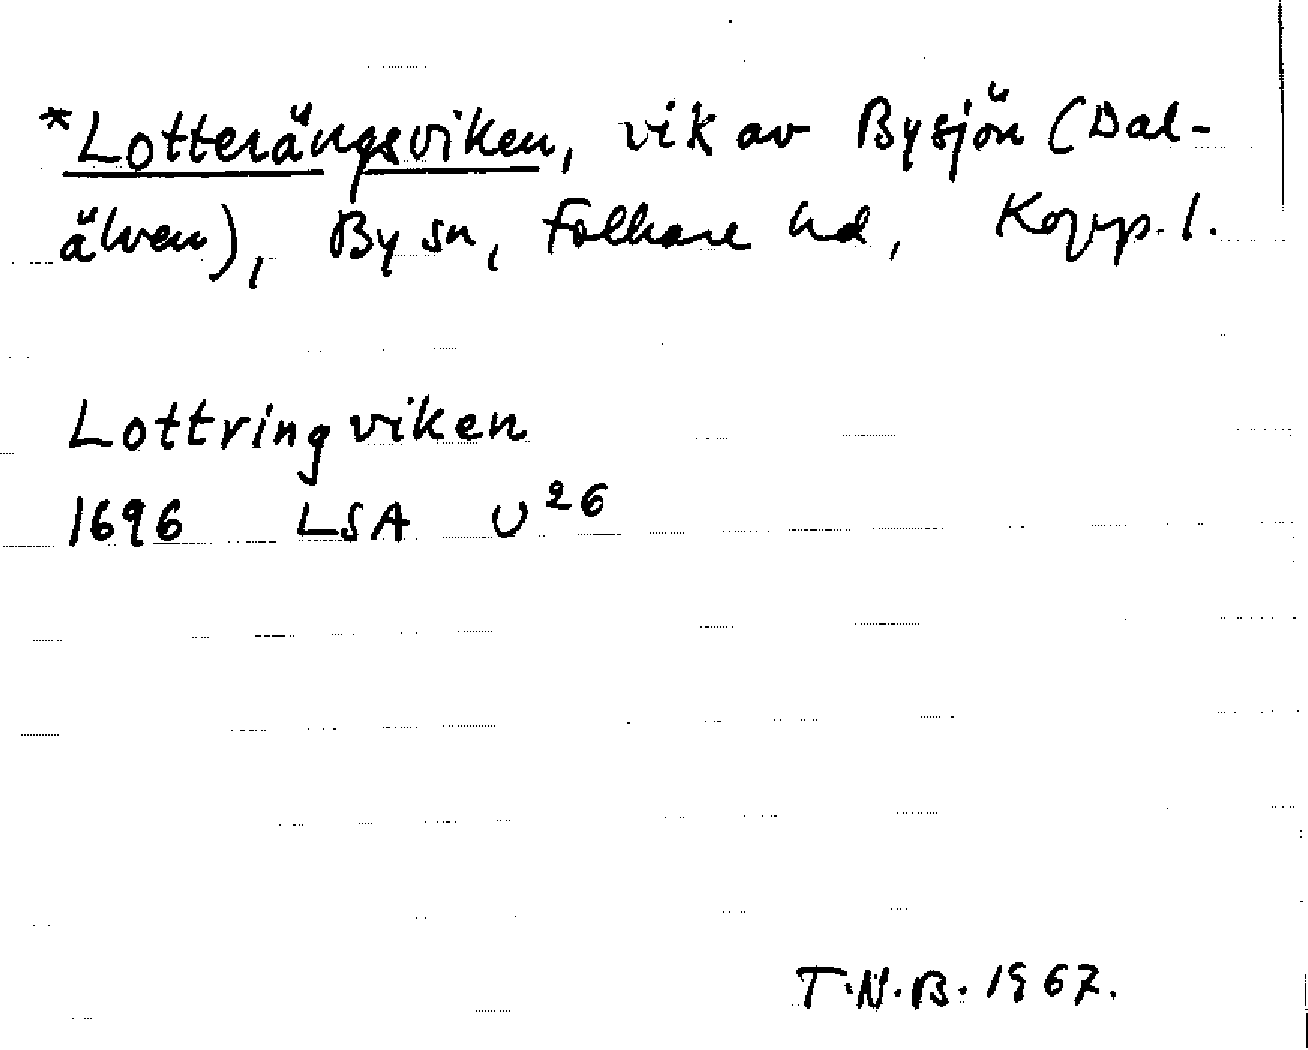 *Lotterängsviken, vik av Bysjön (Dal-
älven), By sn, Folkare hd, Kopp. l.
Lottringviken
1696 LSA U²⁶
T.N.B. 1967.